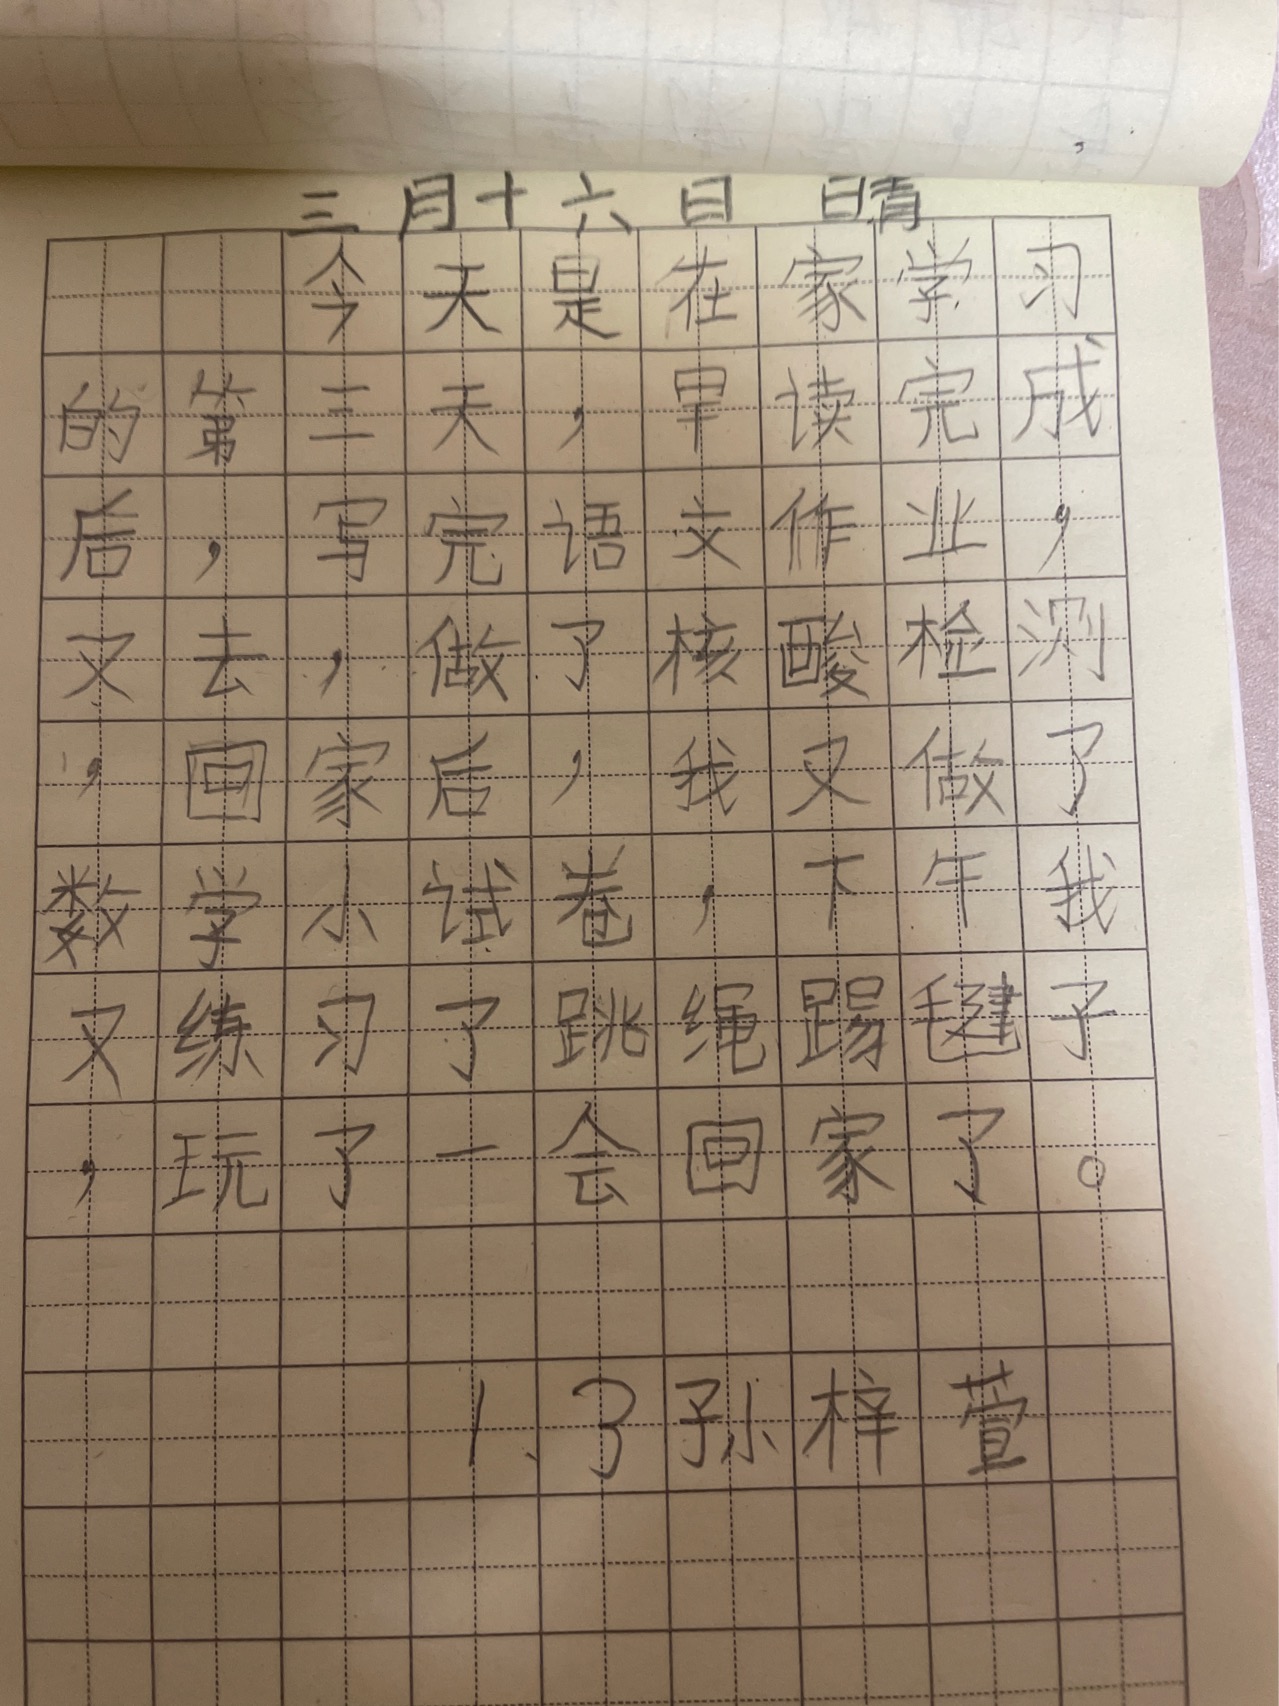 三月十六日 晴
今天是在家学习
的第三天，早读完成
后，写完语文作业，
又去，做了核酸检测
，回家后，我又做了
数学小试卷，下午我
又练习了跳绳踢毽子
，玩了一会回家了。
1、3孙梓萱